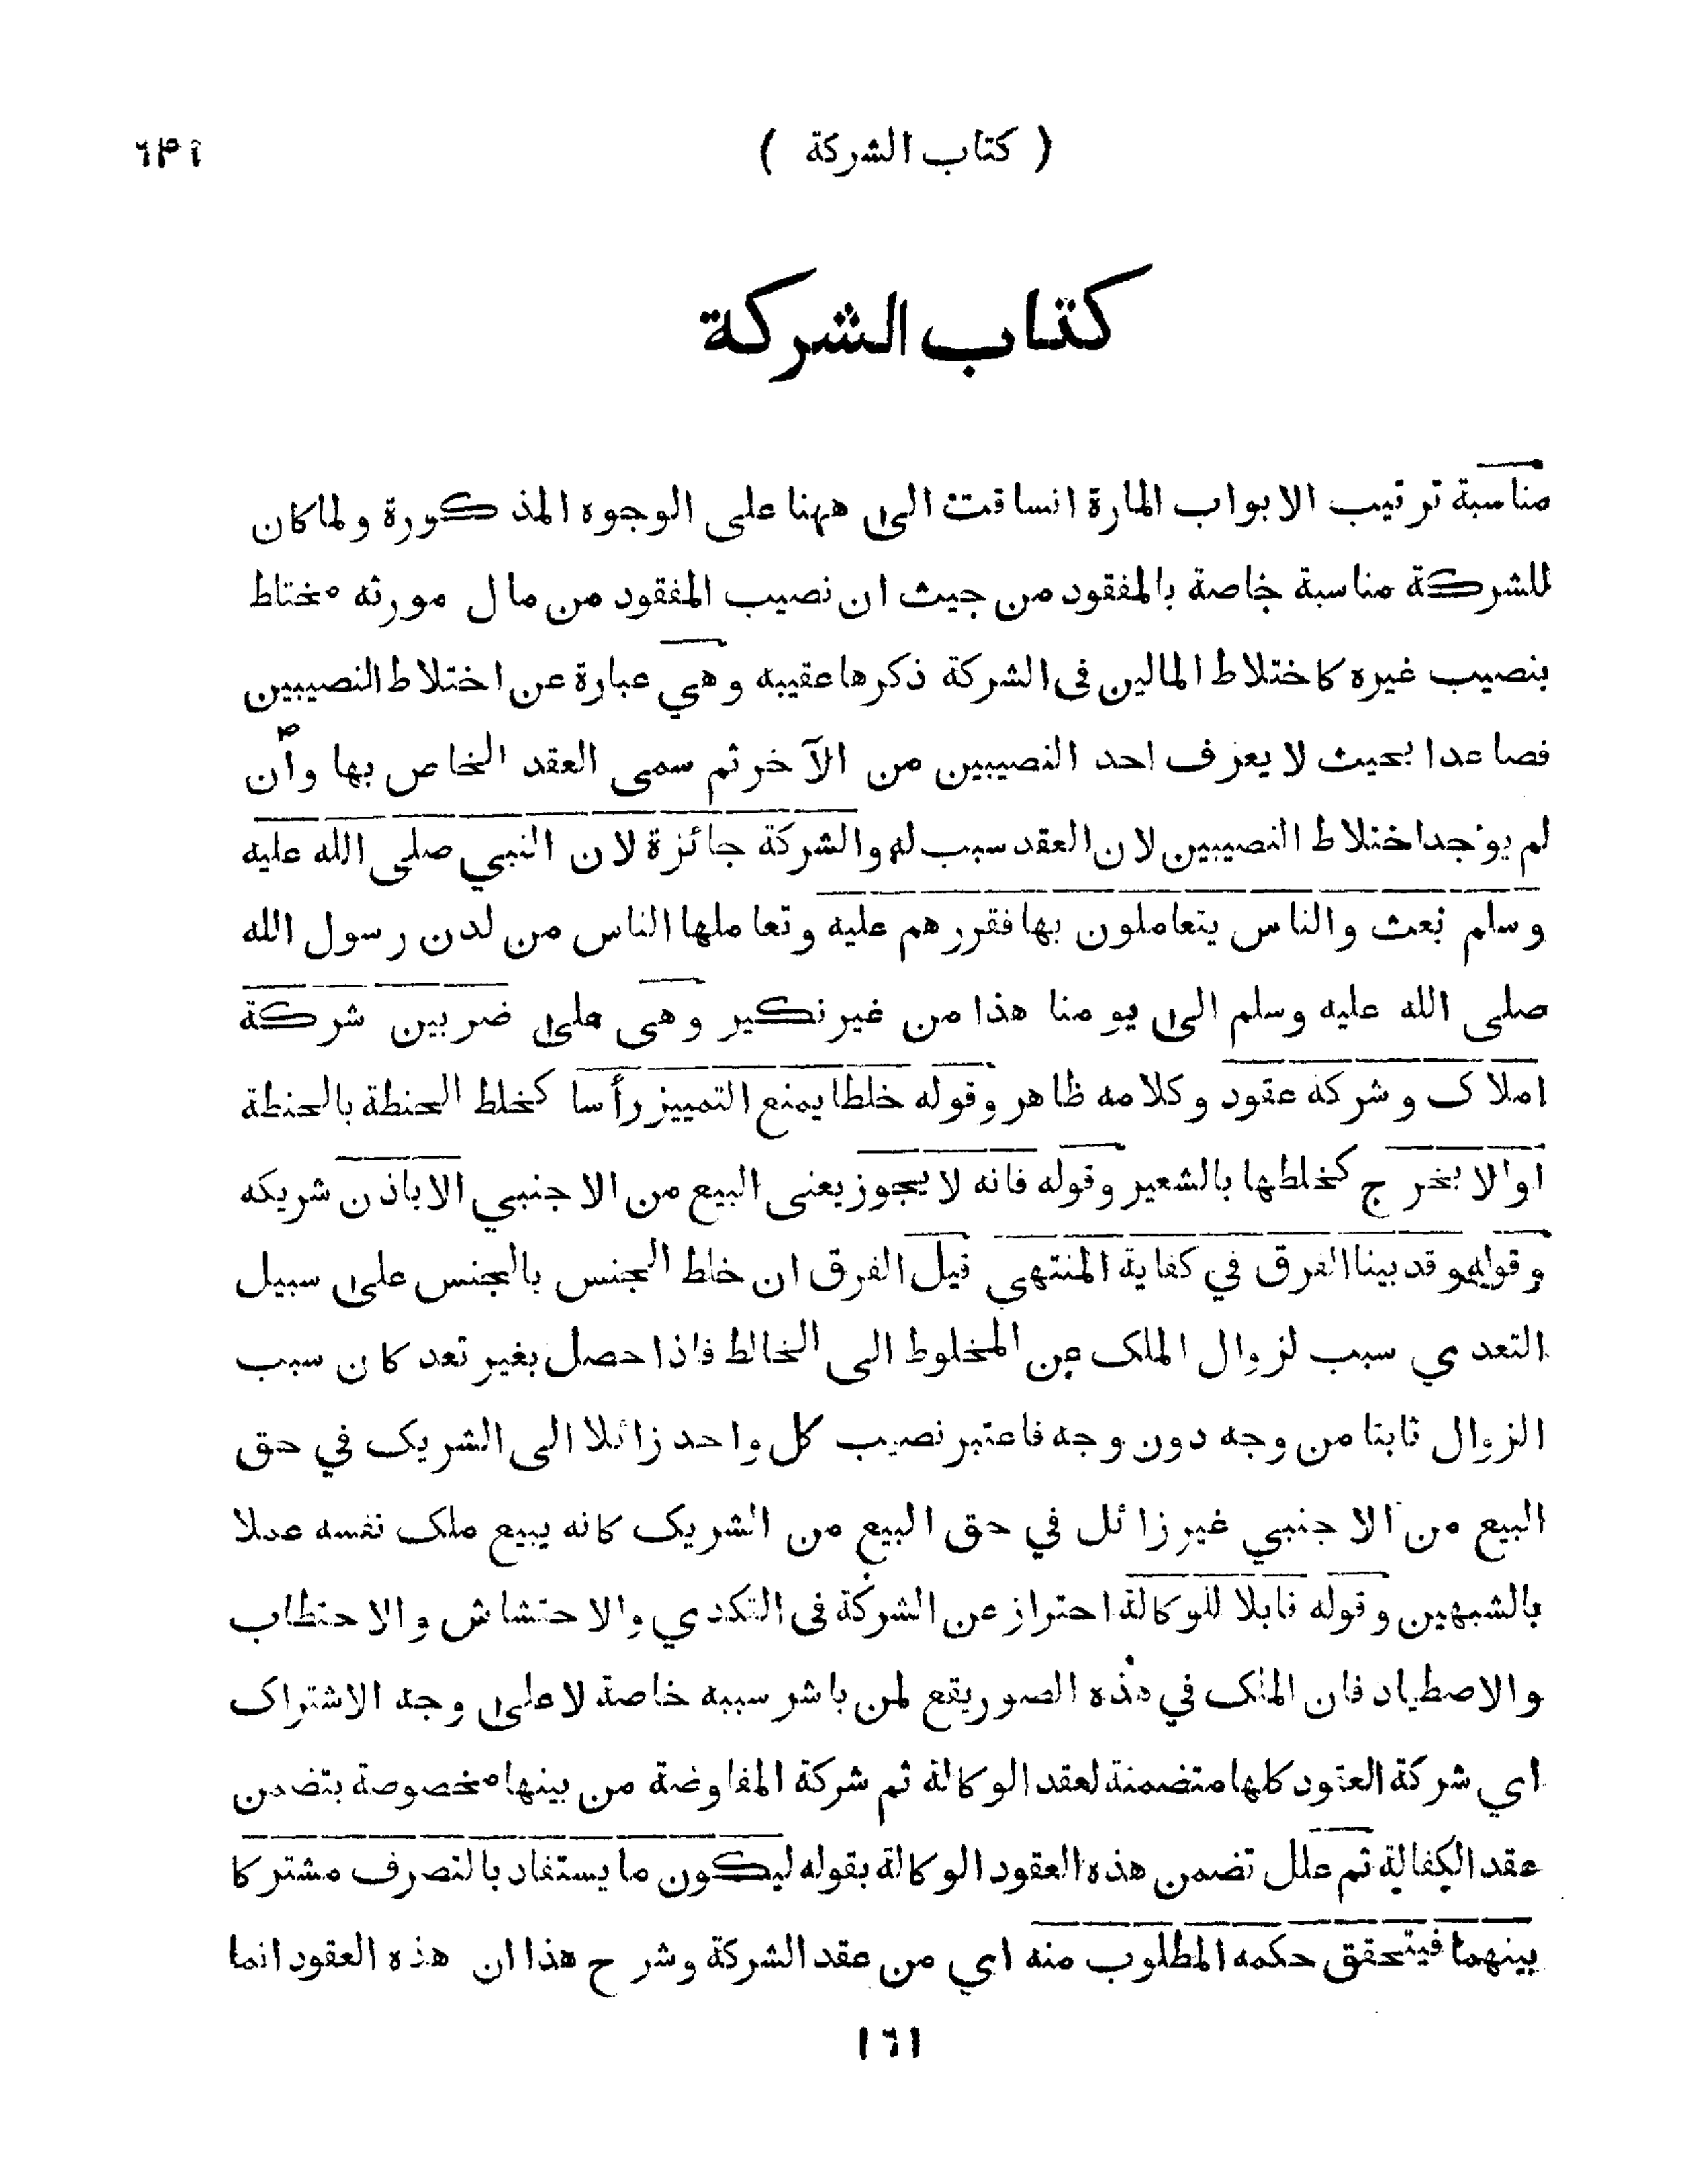 ( كتاب الشركة ) ٦٤١
كتاب الشركة
مناسبة ترتيب الابواب المارة انساقت الى ههنا على الوجوه المذكورة ولما كان
للشركة مناسبة خاصة بالمفقود من حيث ان نصيب المفقود من مال مورثه مختلط
بنصيب غيره كاختلاط المالين فى الشركة ذكرها عقيبه وهي عبارة عن اختلاط النصيبين
فصاعدا بحيث لا يعرف احد النصيبين من الآخر ثم سمى العقد الخاص بها وان
لم يوجد اختلاط النصيبين لان العقد سبب له والشركة جائزة لان النبي صلى الله عليه
وسلم بعث والناس يتعاملون بها فقررهم عليه وتعاملها الناس من لدن رسول الله
صلى الله عليه وسلم الى يومنا هذا من غير نكير وهى على ضربين شركة
املاك وشركة عقود وكلامه ظاهر وقوله خلطا يمنع التمييز رأسا كخلط الحنطة بالحنطة
او الا بخرج كخلطها بالشعير وقوله فانه لا يجوز يعنى البيع من الاجنبي الا باذن شريكه
وقوله وقد بينا الفرق في كفاية المنتهى قيل الفرق ان خلط الجنس بالجنس على سبيل
التعدي سبب لزوال الملك عن المخلوط الى الخالط فاذا حصل بغير تعد كان سبب
الزوال ثابتا من وجه دون وجه فاعتبر نصيب كل واحد زائلا الى الشريك في حق
البيع من الاجنبي غير زائل في حق البيع من الشريك كانه يبيع ملك نفسه عملا
بالشبهين وقوله قابلا للوكالة احتراز عن الشركة فى التكدي والاحتشاش والاحتطاب
والاصطياد فان الملك في هذه الصور يقع لمن باشر سببه خاصة لا على وجه الاشتراك
اي شركة العقود كلها متضمنة لعقد الوكالة ثم شركة المفاوضة من بينها مخصوصة بتضمن
عقد الكفالة ثم علل تضمن هذه العقود الوكالة بقوله ليكون ما يستفاد بالتصرف مشتركا
بينهما فيتحقق حكمه المطلوب منه اي من عقد الشركة وشرح هذا ان هذه العقود انما
١٦١